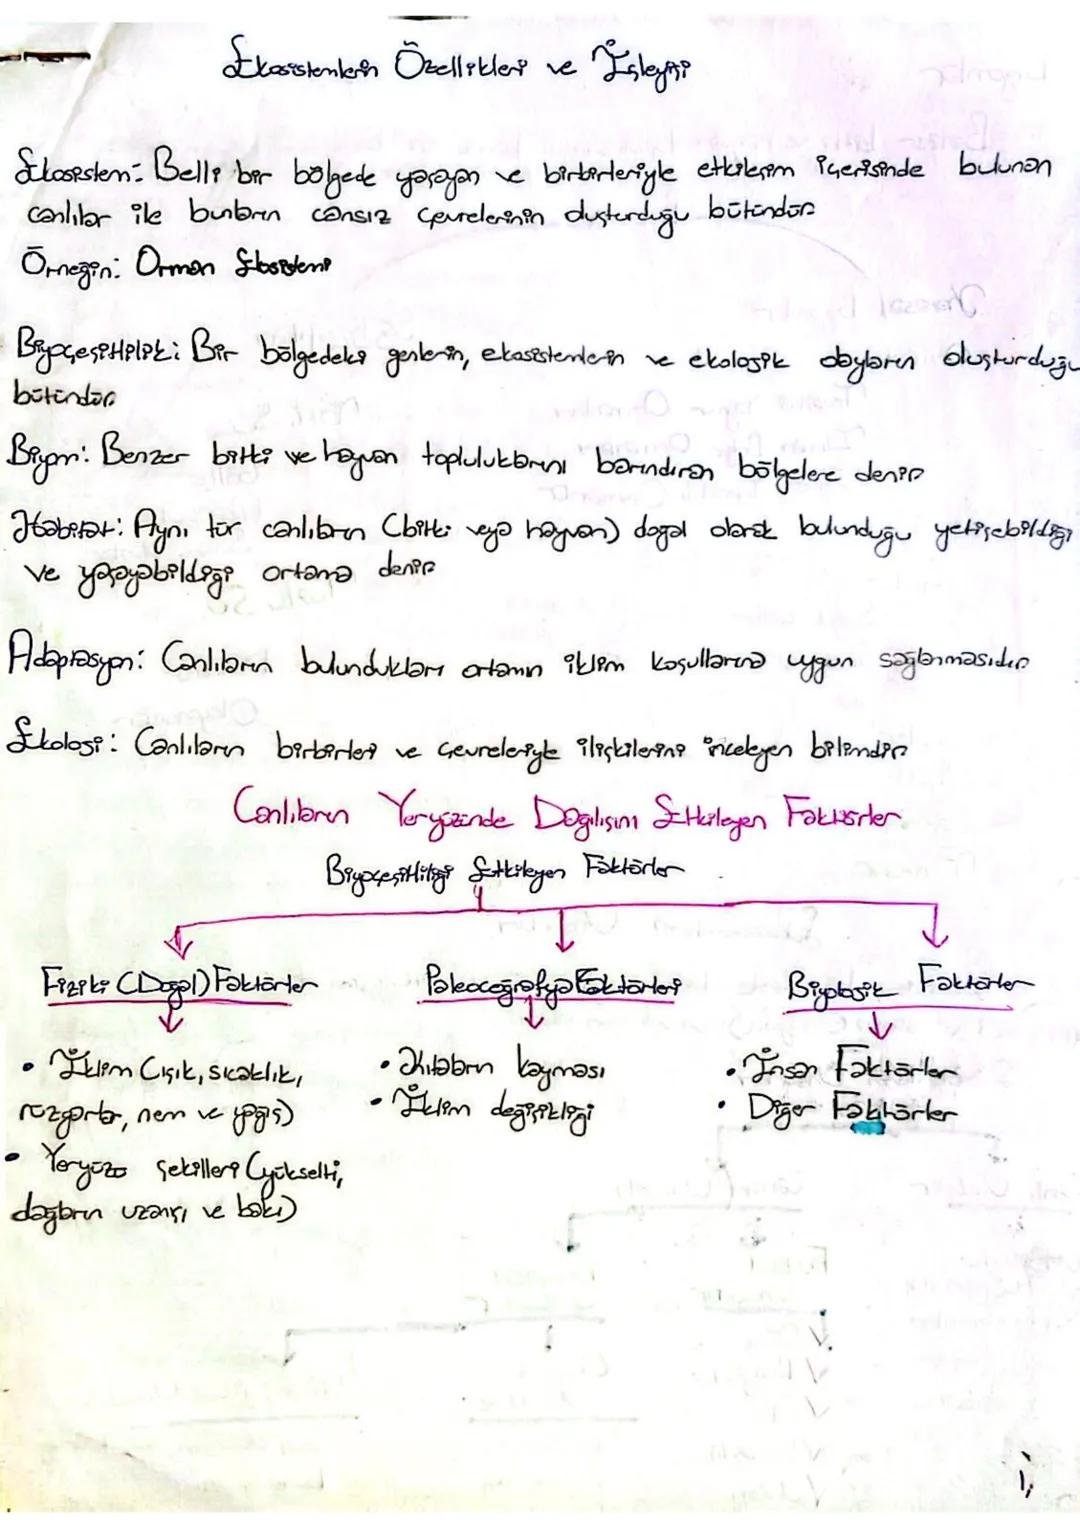 Ekosistemlerin Özellikleri ve İşleyişi
Ekosistem: Belli bir bölgede yaşayan ve birbirleriyle etkileşim içerisinde bulunan
canlılar ile bunların cansız çevrelerinin oluşturduğu bütündür
Örneğin: Orman Ekosistemi
Biyoçeşitlilik: Bir bölgedeki genlerin, ekosistemlerin ve ekolojik olayların oluşturduğu
bütündür
Biyom: Benzer bitki ve hayvan topluluklarını barındıran bölgelere denir
Habitat: Aynı tür canlıların (bitki veya hayvan) doğal olarak bulunduğu yetişebildiği
ve yaşayabildiği ortama denir
Adaptasyon: Canlıların bulundukları ortamın iklim koşullarına uygun sağlanmasıdır
Ekoloji: Canlıların birbirleri ve çevreleriyle ilişkilerini inceleyen bilimdir
Canlıların Yeryüzünde Dağılışını Etkileyen Faktörler
Biyoçeşitliliği Etkileyen Faktörler
Fiziki (Doğal) Faktörler
Paleocoğrafya Faktörleri
Biyolojik Faktörler
• İklim (ışık, sıcaklık,
rüzgarlar, nem ve yağış)
• Yeryüzü şekilleri (yükselti,
dağların uzanışı ve bakı)
• Kıtaların kayması
• İklim değişikliği
• İnsan Faktörler
• Diğer Faktörler
1,